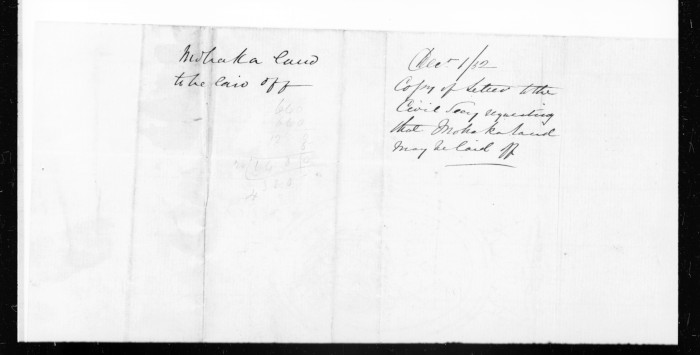 Mohaka land
to be laid off
Decr 1/52
Copy of Letter to the
Civil Secy requesting
that Mohaka land
may be laid off